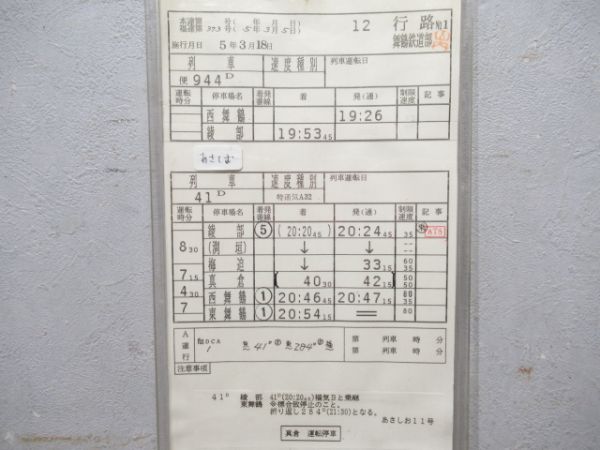 本運第 号( 年 月 日)
福運第 393号( 5年 3月 5日)
12 行路 №1
施行月日 5年3月18日
舞鶴鉄道部
列車 速度種別 列車運転日
便 944D
運転時分 停車場名 着発番線 着 発(通) 制限速度 記事
西舞鶴 19:26
綾部 19:53 45
あさしお
列車 速度種別 列車運転日
41D 特通気A32
運転時分 停車場名 着発番線 着 発(通) 制限速度 記事
綾部 ⑤ (20:20 45) 20:24 45 35 ATS
8 30 (渕垣) ↓ ↓
梅迫 ↓ 33 15 60 35
7 15 真倉 (40 30 42 15) 50 50
4 30 西舞鶴 ① 20:46 45 20:47 15 80 35
7 東舞鶴 ① 20:54 15 40
A運行 1 41D 284D
第 列車 時 分
第 列車 時 分
注意事項
41D 綾部 41D(20:20 45)福気Dと乗継
東舞鶴 ※標合致停止のこと。
折り返し284D(21:30)となる。
あさしお11号
真倉 運転停車